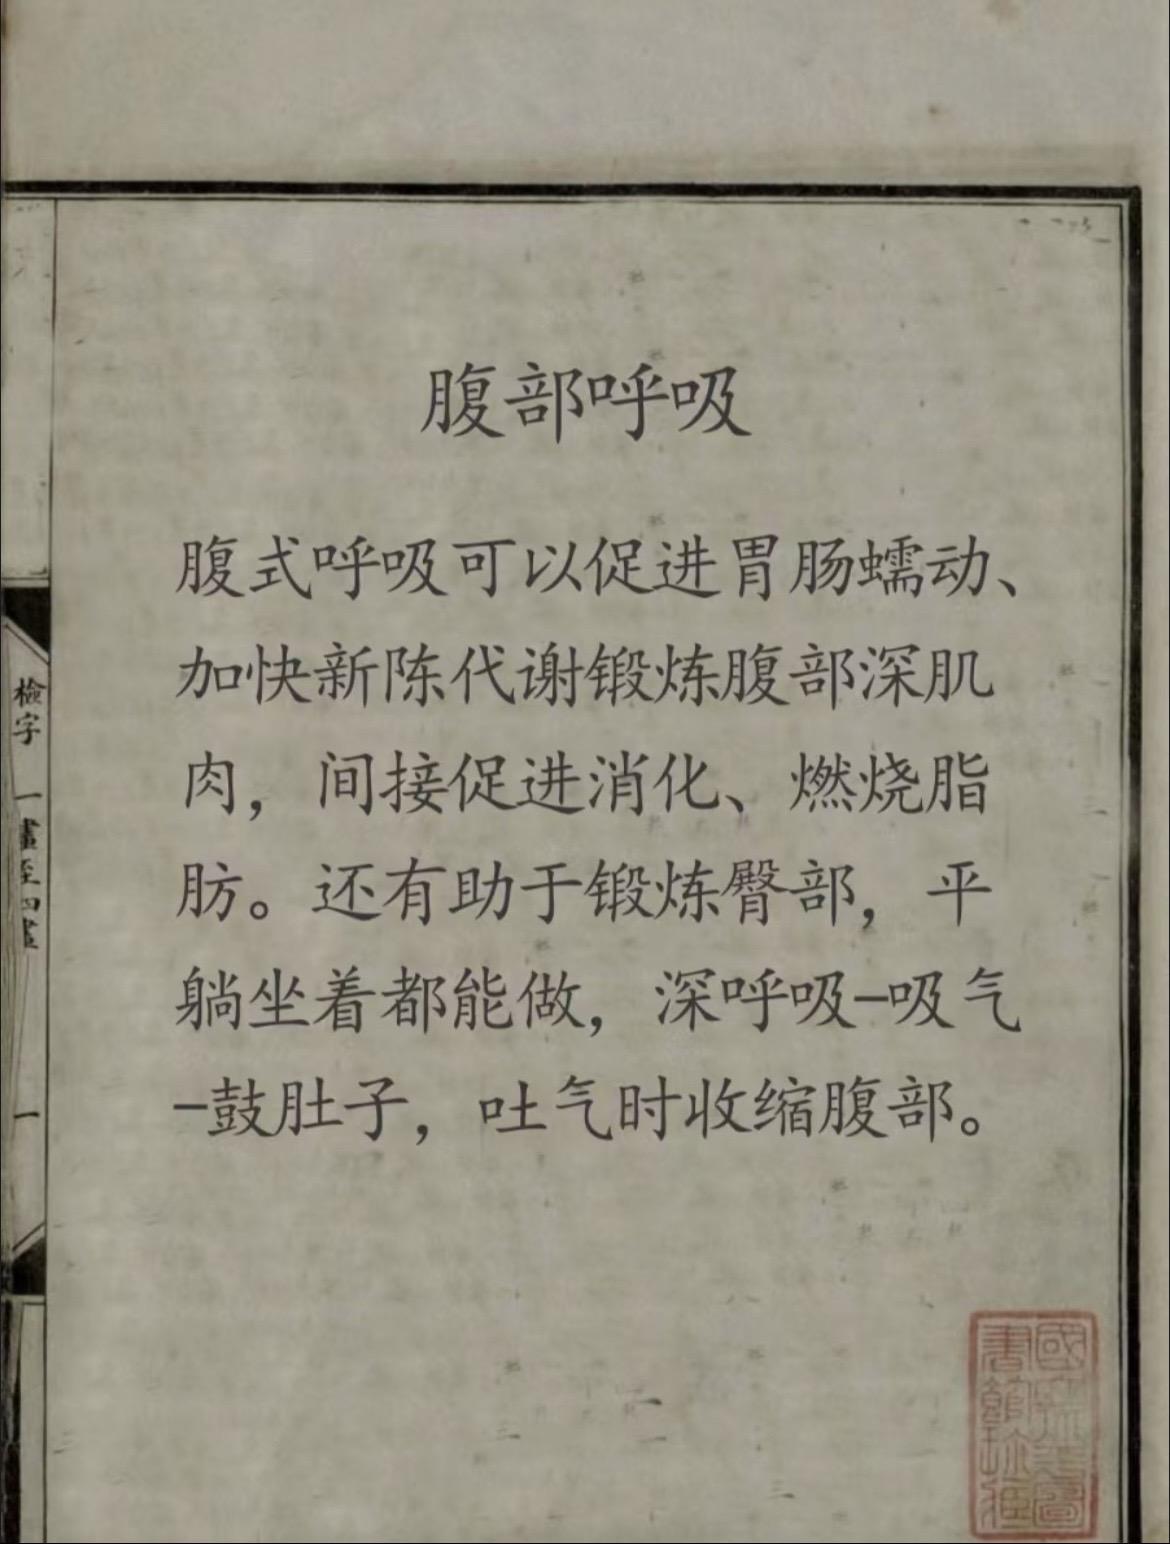 腹部呼吸
腹式呼吸可以促进胃肠蠕动、
加快新陈代谢锻炼腹部深肌
肉，间接促进消化、燃烧脂
肪。还有助于锻炼臀部，平
躺坐着都能做，深呼吸-吸气
-鼓肚子，吐气时收缩腹部。
檢字 一畫至四畫
一